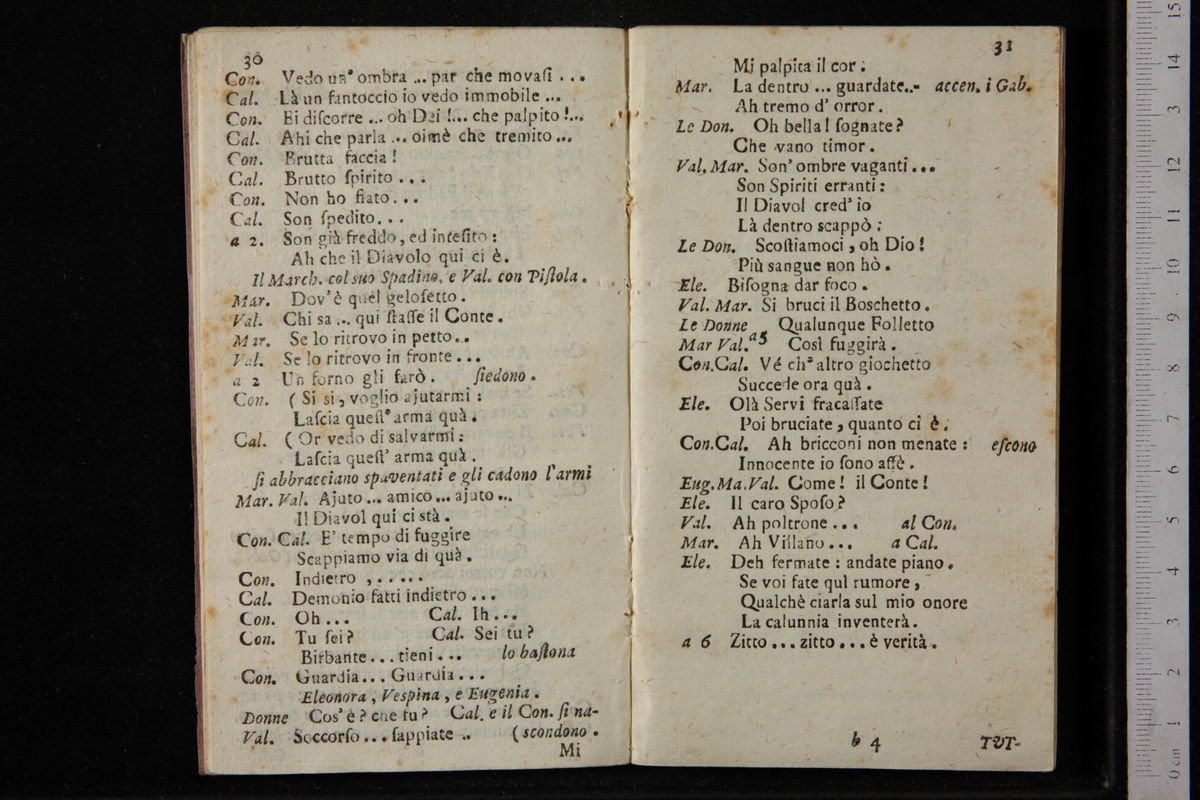 30
Con. Vedo un' ombra ... par che movaſi ...
Cal. Là un fantoccio io vedo immobile ...
Con. Ei diſcorre ... oh Dei !... che palpito !...
Cal. Ahi che parla ... oimè che tremito ...
Con. Brutta faccia !
Cal. Brutto ſpirito ...
Con. Non ho fiato ...
Cal. Son ſpedito. ..
a 2. Son già freddo, ed inteſito :
Ah che il Diavolo qui ci è.
Il March. col suo Spadino, e Val. con Piſtola.
Mar. Dov' è quel geloſetto.
Val. Chi sa ... qui ſtaſſe il Conte.
Mar. Se lo ritrovo in petto..
Val. Se lo ritrovo in fronte ...
a 2 Un forno gli farò. ſiedono.
Con. ( Si si, voglio ajutarmi :
Laſcia queſt' arma quà.
Cal. ( Or vedo di salvarmi :
Laſcia queſt' arma quà.
ſi abbracciano spaventati e gli cadono l'armi
Mar. Val. Ajuto ... amico ... ajuto ...
Il Diavol qui ci stà.
Con. Cal. E' tempo di fuggire
Scappiamo via di quà.
Con. Indietro , . . ...
Cal. Demonio fatti indietro ...
Con. Oh ... Cal. Ih ...
Con. Tu ſei? Cal. Sei tu?
Birbante ... tieni ... lo baſtona
Con. Guardia ... Guardia ...
Eleonora, Veſpina, e Eugenia.
Donne Cos' è? che fu? Cal. e il Con. ſi na-
Val. Soccorſo ... ſappiate .. (scondono.
Mi
31
Mi palpita il cor.
Mar. La dentro ... guardate..- accen. i Gab.
Ah tremo d' orror.
Le Don. Oh bella! ſognate?
Che vano timor.
Val. Mar. Son' ombre vaganti ...
Son Spiriti erranti :
Il Diavol cred' io
Là dentro scappò ;
Le Don. Scoſtiamoci, oh Dio!
Più sangue non hò.
Ele. Biſogna dar foco.
Val. Mar. Si bruci il Boschetto.
Le Donne Qualunque Folletto
Mar Val. a5 Così fuggirà.
Con.Cal. Vé ch' altro giochetto
Succede ora quà.
Ele. Olà Servi fracaſſate
Poi bruciate, quanto ci è.
Con.Cal. Ah bricconi non menate : eſcono
Innocente io ſono affè.
Eug.Ma.Val. Come! il Conte!
Ele. Il caro Spoſo?
Val. Ah poltrone ... al Con.
Mar. Ah Villano ... a Cal.
Ele. Deh fermate : andate piano.
Se voi fate quì rumore,
Qualchè ciarla sul mio onore
La calunnia inventerà.
a 6 Zitto ... zitto ... è verità.
b 4 TUT-
0 cm 1 2 3 4 5 6 7 8 9 10 11 12 13 14 15